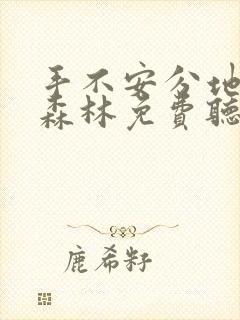 手不安分地
森林免费聽
鹿希籽